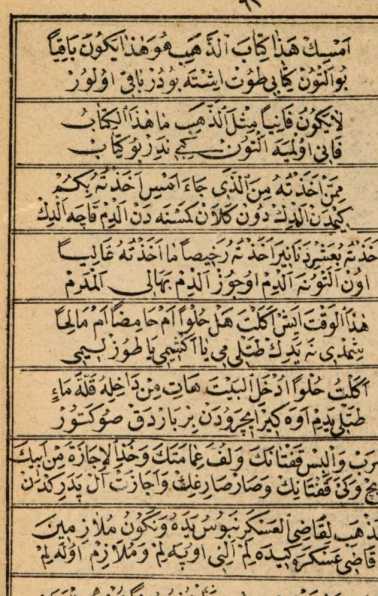 ٦٢
اَمْسِكْ هَذَا كِتَابَ اَلذَّهَبِ هُوَ هَذَا يَكُونُ بَاقِيًا
بو التون كتابى طوت ايشته بودر باقى اولور
لَا يَكُونُ فَانِيًا مِثْلَ اَلذَّهَبِ مَا هَذَا اَلْكِتَابُ
فانى اولميه التون كبى ندر بو كتاب
مِمَّنْ اَخَذْتَهُ مِنَ اَلَّذِى جَاءَ اَمْسِ اَخَذْتَهُ بِكَمْ
كيمدن الدك دون كلان كمسنه دن الدم قاچه الدك
اَخَذْتُهُ بِعَشْرِ دَنَانِيرَ اَخَذْتُهُ رَخِيصًا مَا اَخَذْتُهُ غَالِيًا
اون التونه الدم اوجوز الدم بهالى المدم
هَذَا اَلْوَقْتَ اَيْشْ اَكَلْتَ هَلْ حُلْوًا اَمْ حَامِضًا اَمْ مَالِحًا
شمدى نه يدك طتلى مى يا اكشيمى يا طوزليمى
اَكَلْتُ حُلْوًا اُدْخُلِ اَلْبَيْتَ هَاتِ مِنْ دَاخِلِهِ قُلَّةَ مَاءٍ
طتلى يدم اوه كير ايچرودن بر بارداق صو كتور
وَالْبِسْ قَفْتَانَكَ وَلُفَّ عِمَامَتَكَ وَخُذِ اَلْاِجَازَةَ مِنْ اَبِيكَ
وكى قفتانكى وصار صارغكى واجازت آل پدركدن
نَذْهَبُ لِقَاضِى اَلْعَسْكَرِ نَبُوسُ يَدَهُ وَنَكُونُ مُلَازِمِينَ
قاضى عسكره كيده لم النى اوپه لم وملازم اوله لم